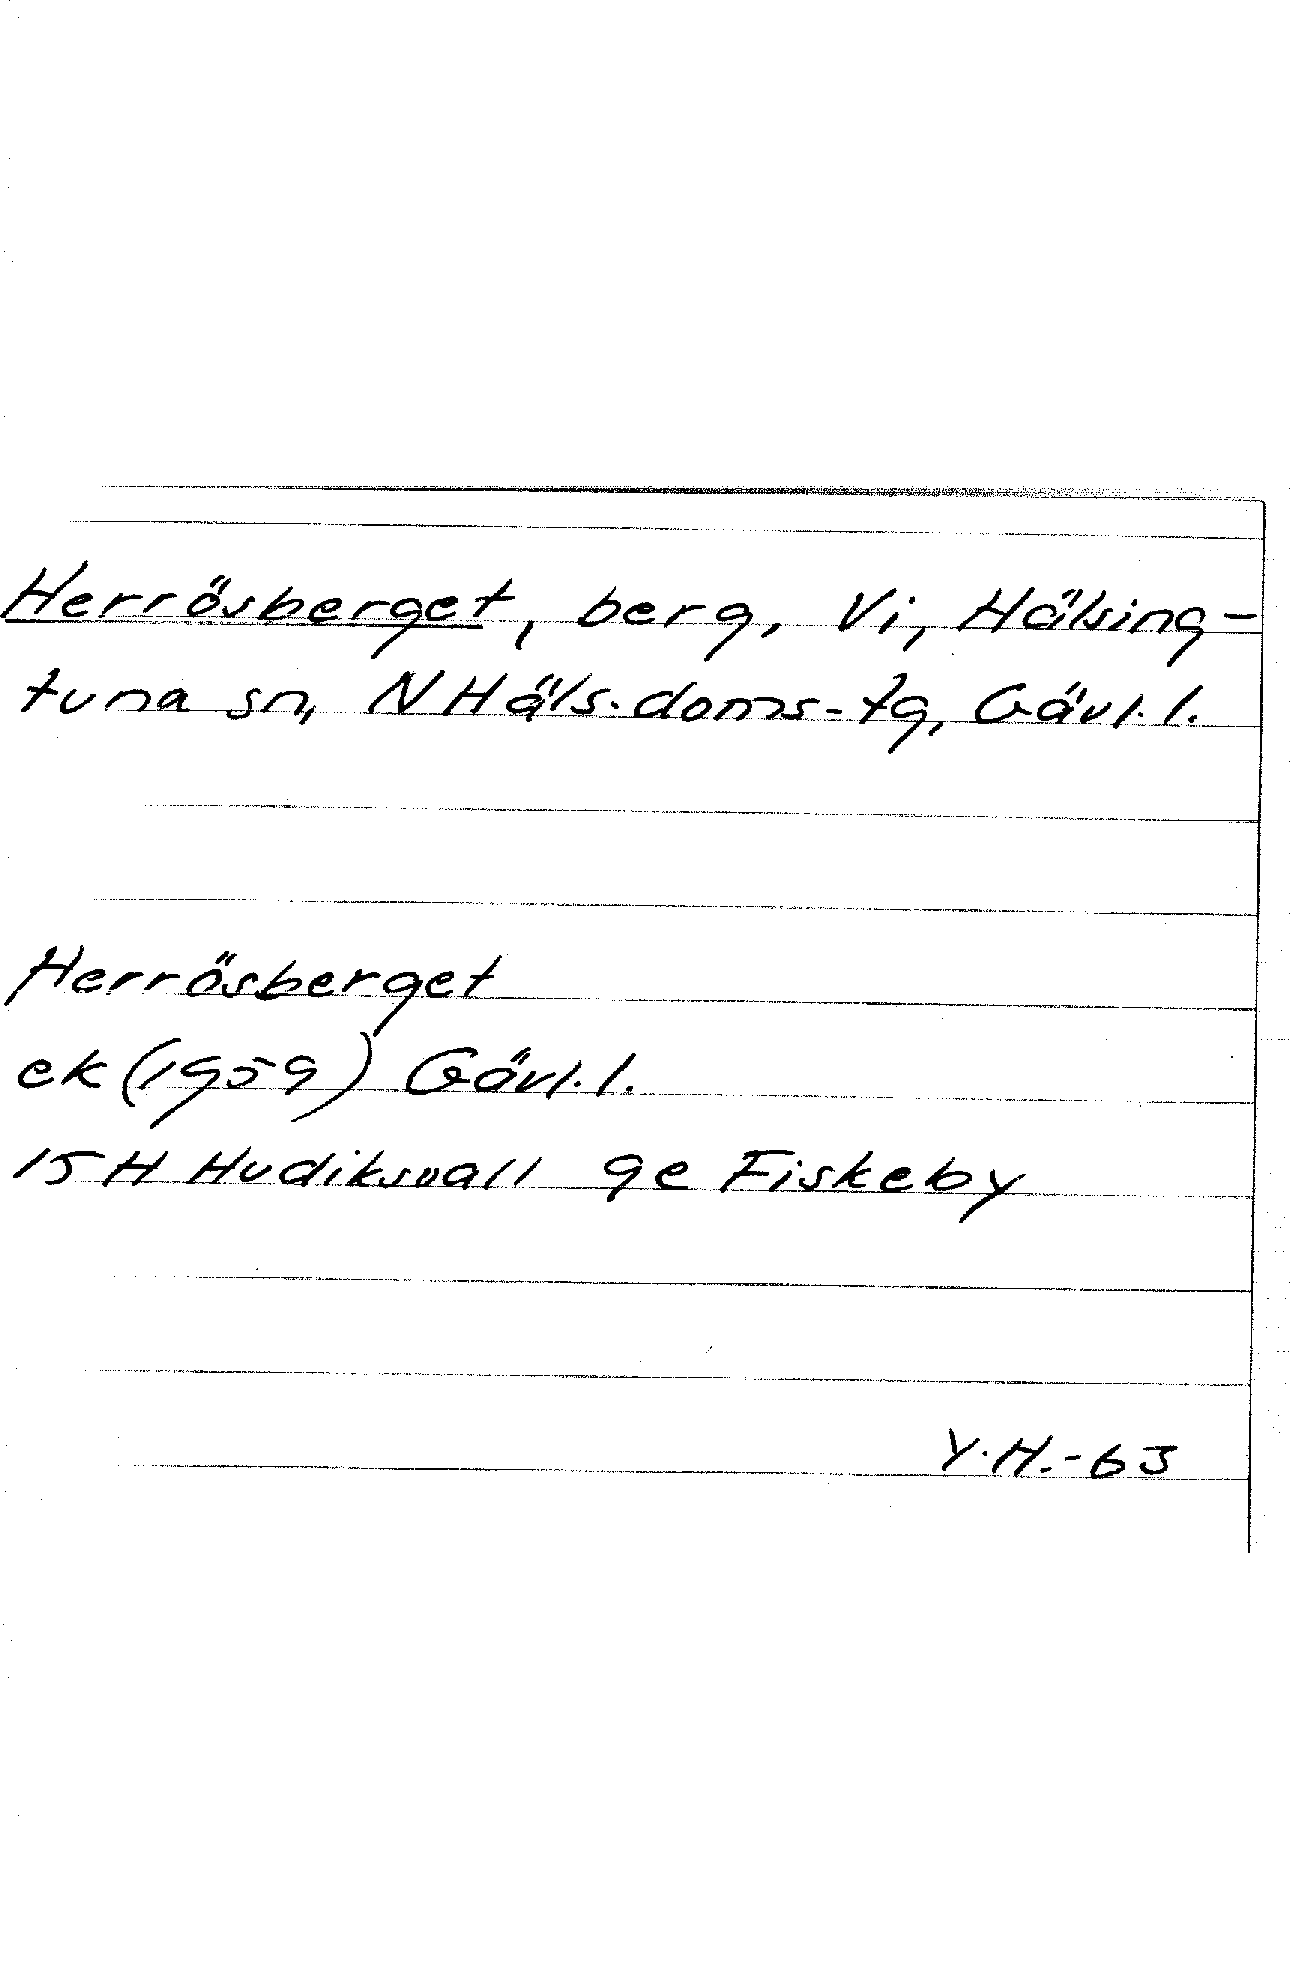 Herrösberget, berg, Vi, Hälsing-
tuna sn, N Häls. doms-tg, Gävl.l.
Herrösberget
ek (1959) Gävl.l.
15H Hudiksvall 9e Fiskeby
Y.H.-63